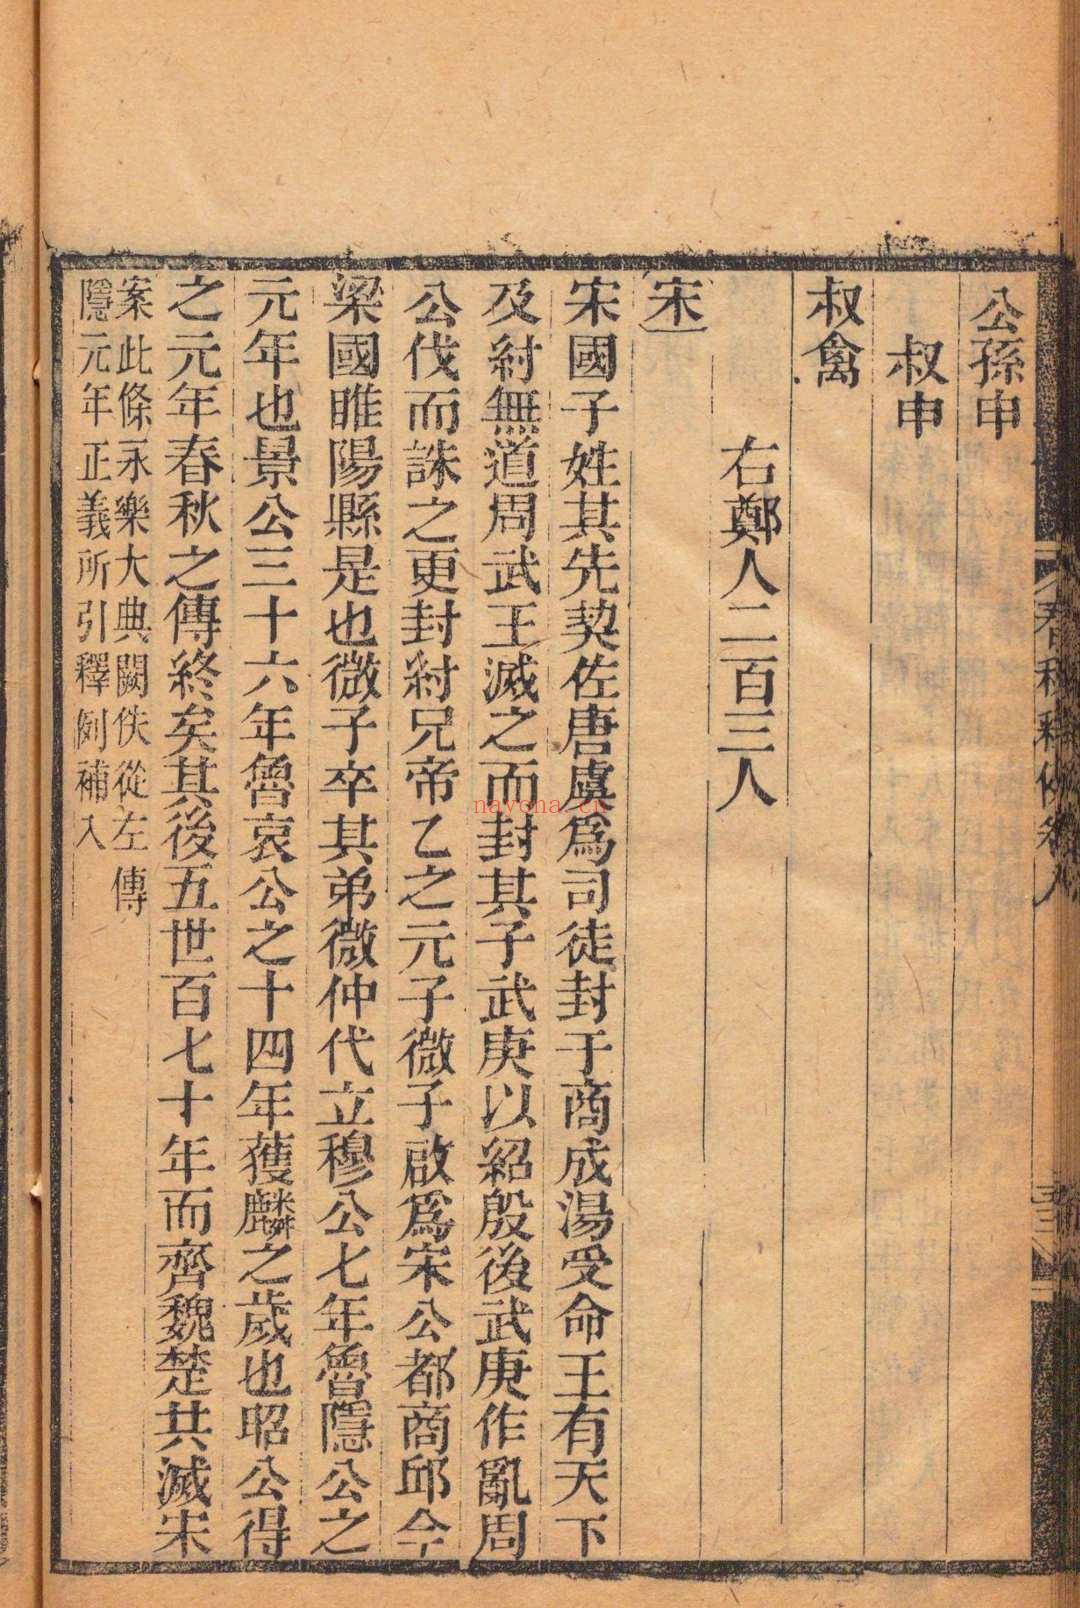 公孫申
叔申
叔禽
右鄭人二百三人
宋
宋國子姓其先契佐唐虞爲司徒封于商成湯受命王有天下
及紂無道周武王滅之而封其子武庚以紹殷後武庚作亂周
公伐而誅之更封紂兄帝乙之元子微子啟爲宋公都商邱今
梁國睢陽縣是也微子卒其弟微仲代立穆公七年魯隱公之
元年也景公三十六年魯哀公之十四年獲麟之歲也昭公得
之元年春秋之傳終矣其後五世百七十年而齊魏楚共滅宋
案此條永樂大典闕佚從左傳
隱元年正義所引釋例補入